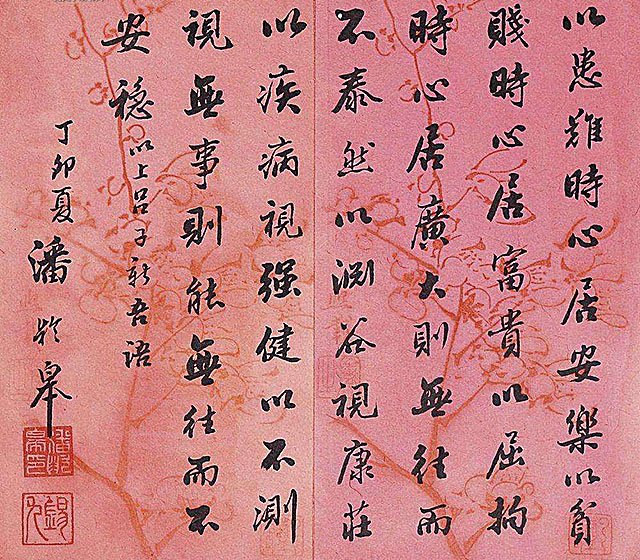 以患難時心居安樂以貧
賤時心居富貴以屈拘
時心居廣大則無往而
不泰然以淵谷視康莊
以疾病視强健以不測
視無事則能無往而不
安穩 以上吕子新吾語
丁卯夏 潘齡皋